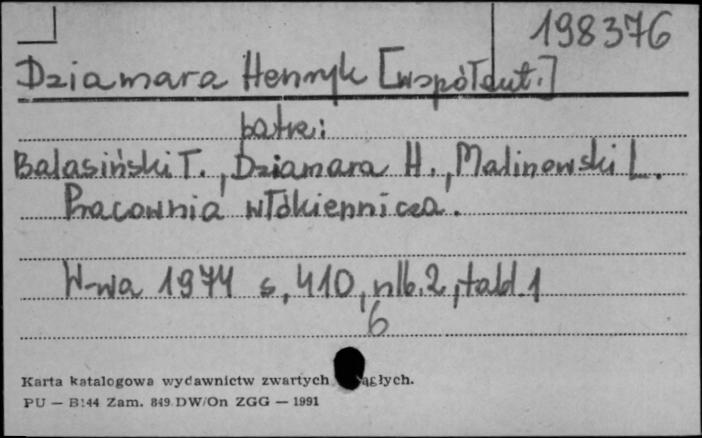 198376
Dziamara Henryk [współaut.]
patrz:
Balasiński T., Dziamara H., Malinowski L.
Pracownia włókiennicza.
W-wa 1974 s, 410, nlb. 2, tabl. 1
6
Karta katalogowa wydawnictw zwartych ągłych.
PU — B144 Zam. 849 DW/On ZGG — 1991